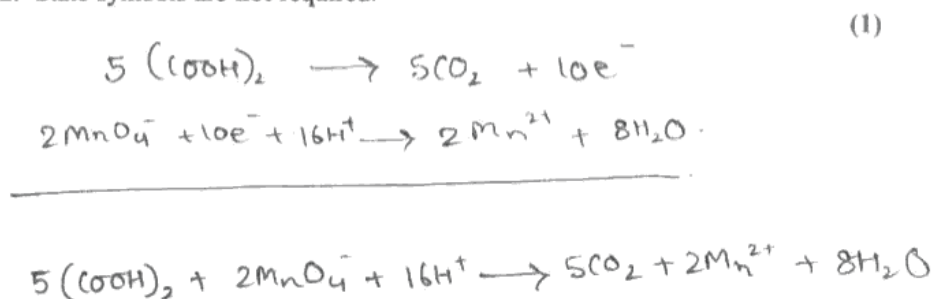 (1)
5 (COOH)₂ ⟶ 5CO₂ + 10e⁻
2MnO₄⁻ + 10e⁻ + 16H⁺ ⟶ 2Mn²⁺ + 8H₂O.
5 (COOH)₂ + 2MnO₄⁻ + 16H⁺ ⟶ 5CO₂ + 2Mn²⁺ + 8H₂O